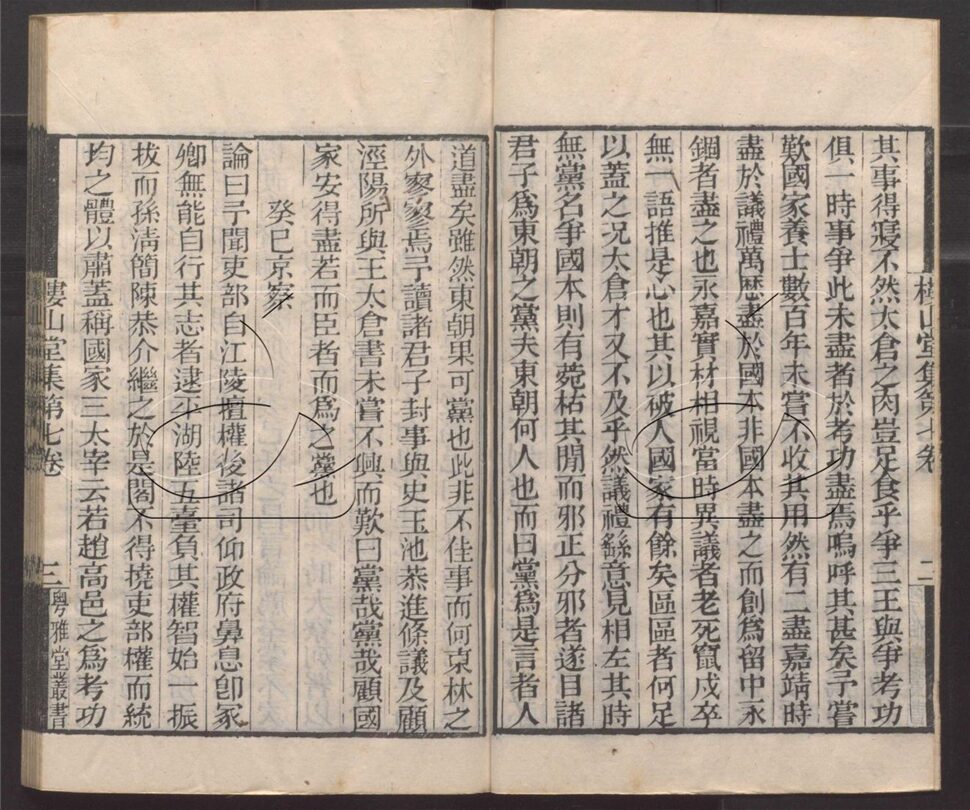 其事得寢不然太倉之肉豈足食乎爭三王與爭考功
俱一時事爭此未盡者於考功盡焉嗚呼其甚矣予嘗
歎國家養士數百年未嘗不收其用然有二盡嘉靖時
盡於議禮萬歷盡於國本非國本盡之而創爲留中永
錮者盡之也永嘉實材相視當時異議者老死竄戍卒
無一語推是心也其以破人國家有餘矣區區者何足
以蓋之况太倉才又不及乎然議禮繇意見相左其時
無黨名爭國本則有菀枯其閒而邪正分邪者遂目諸
君子爲東朝之黨夫東朝何人也而曰黨爲是言者人
樓山堂集第七卷 二
道盡矣雖然東朝果可黨也此非不佳事而何東林之
外寥寥焉予讀諸君子封事與史玉池恭進條議及顧
涇陽所與王太倉書未嘗不興而歎曰黨哉黨哉顧國
家安得盡若而臣者而爲之黨也
癸巳京察
論曰予聞吏部自江陵擅權後諸司仰政府鼻息卽冢
卿無能自行其志者逮平湖陸五臺負其權智始一振
拔而孫淸簡陳恭介繼之於是閣不得撓吏部權而統
均之體以肅蓋稱國家三太宰云若趙高邑之爲考功
樓山堂集第七卷 三 粵雅堂叢書